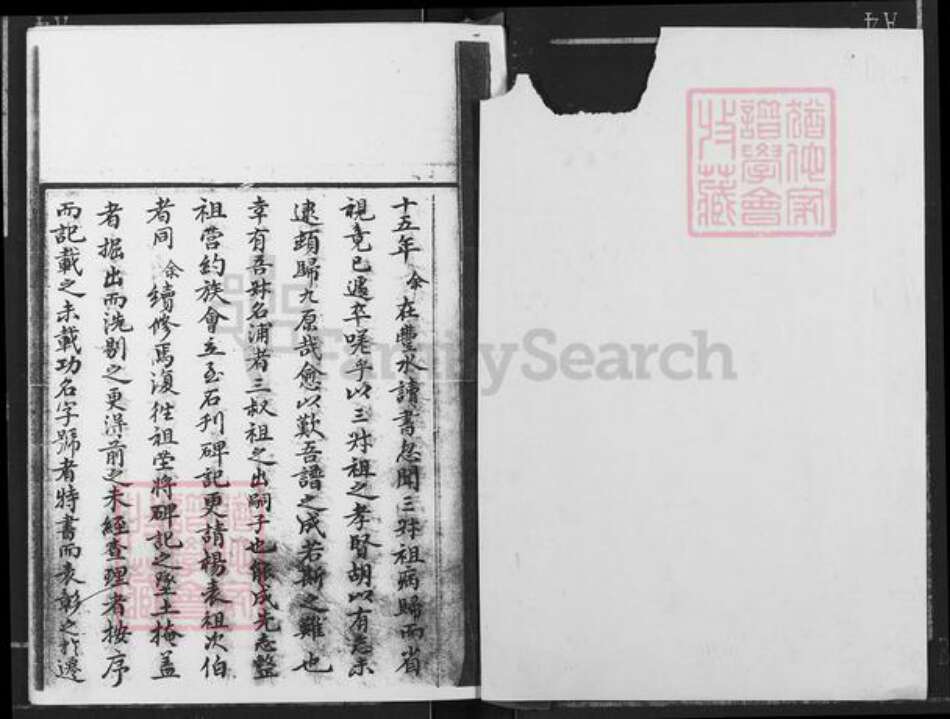 十五年余在豐水讀書忽聞三叔祖病歸而省
視竟已遽卒嗟乎以三叔祖之孝賢胡以有志未
逮頭歸九原哉愈以歎吾譜之成若斯之難也
幸有吾叔名浦者三叔祖之出嗣子也能成先志整
祖營約族會立至石刊碑記更請楊表祖次伯
者同余續修焉復往祖塋將碑記之墜土掩盖
者掘出而洗剔之更得前之未經查理者按序
而記載之未載功名字號者特書而表彰之於遷
猶他家
譜學會
收藏
FamilySearch
A4